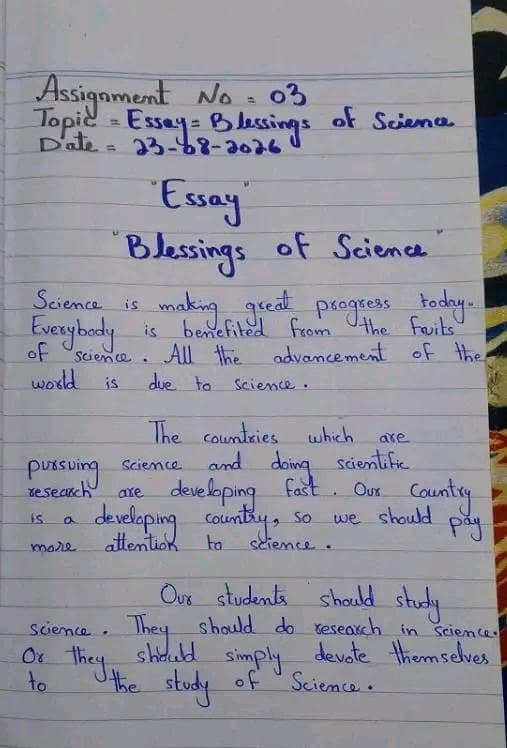 Assignment No = 03
Topic = Essay = Blessings of Science
Date = 23-08-2026
"Essay"
"Blessings of Science"
Science is making great progress today.
Everybody is benefited from the fruits
of science. All the advancement of the
world is due to science.
The countries which are
pursuing science and doing scientific
research are developing fast. Our Country
is a developing country, so we should pay
more attention to science.
Our students should study
science. They should do research in science.
Or they should simply devote themselves
to the study of Science.